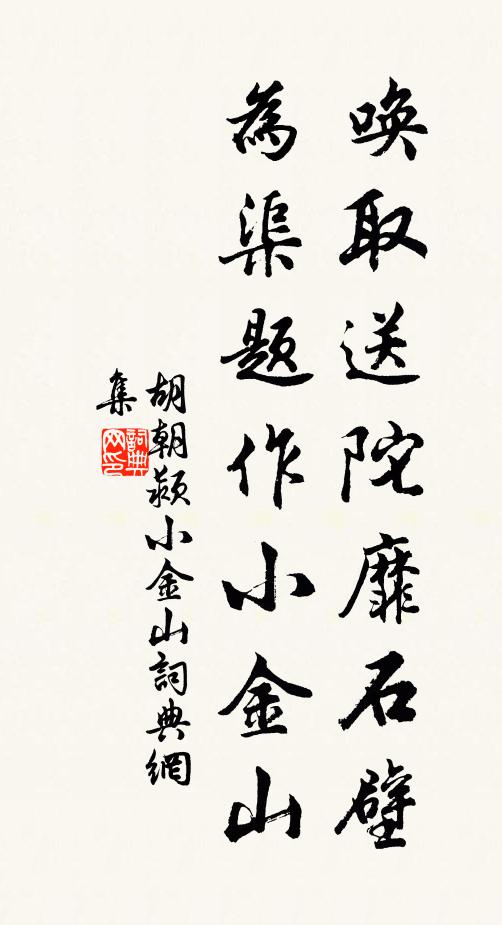 唤取送陀靡石壁
為渠題作小金山
胡朝颖小金山詞典網
集
詞典
网印